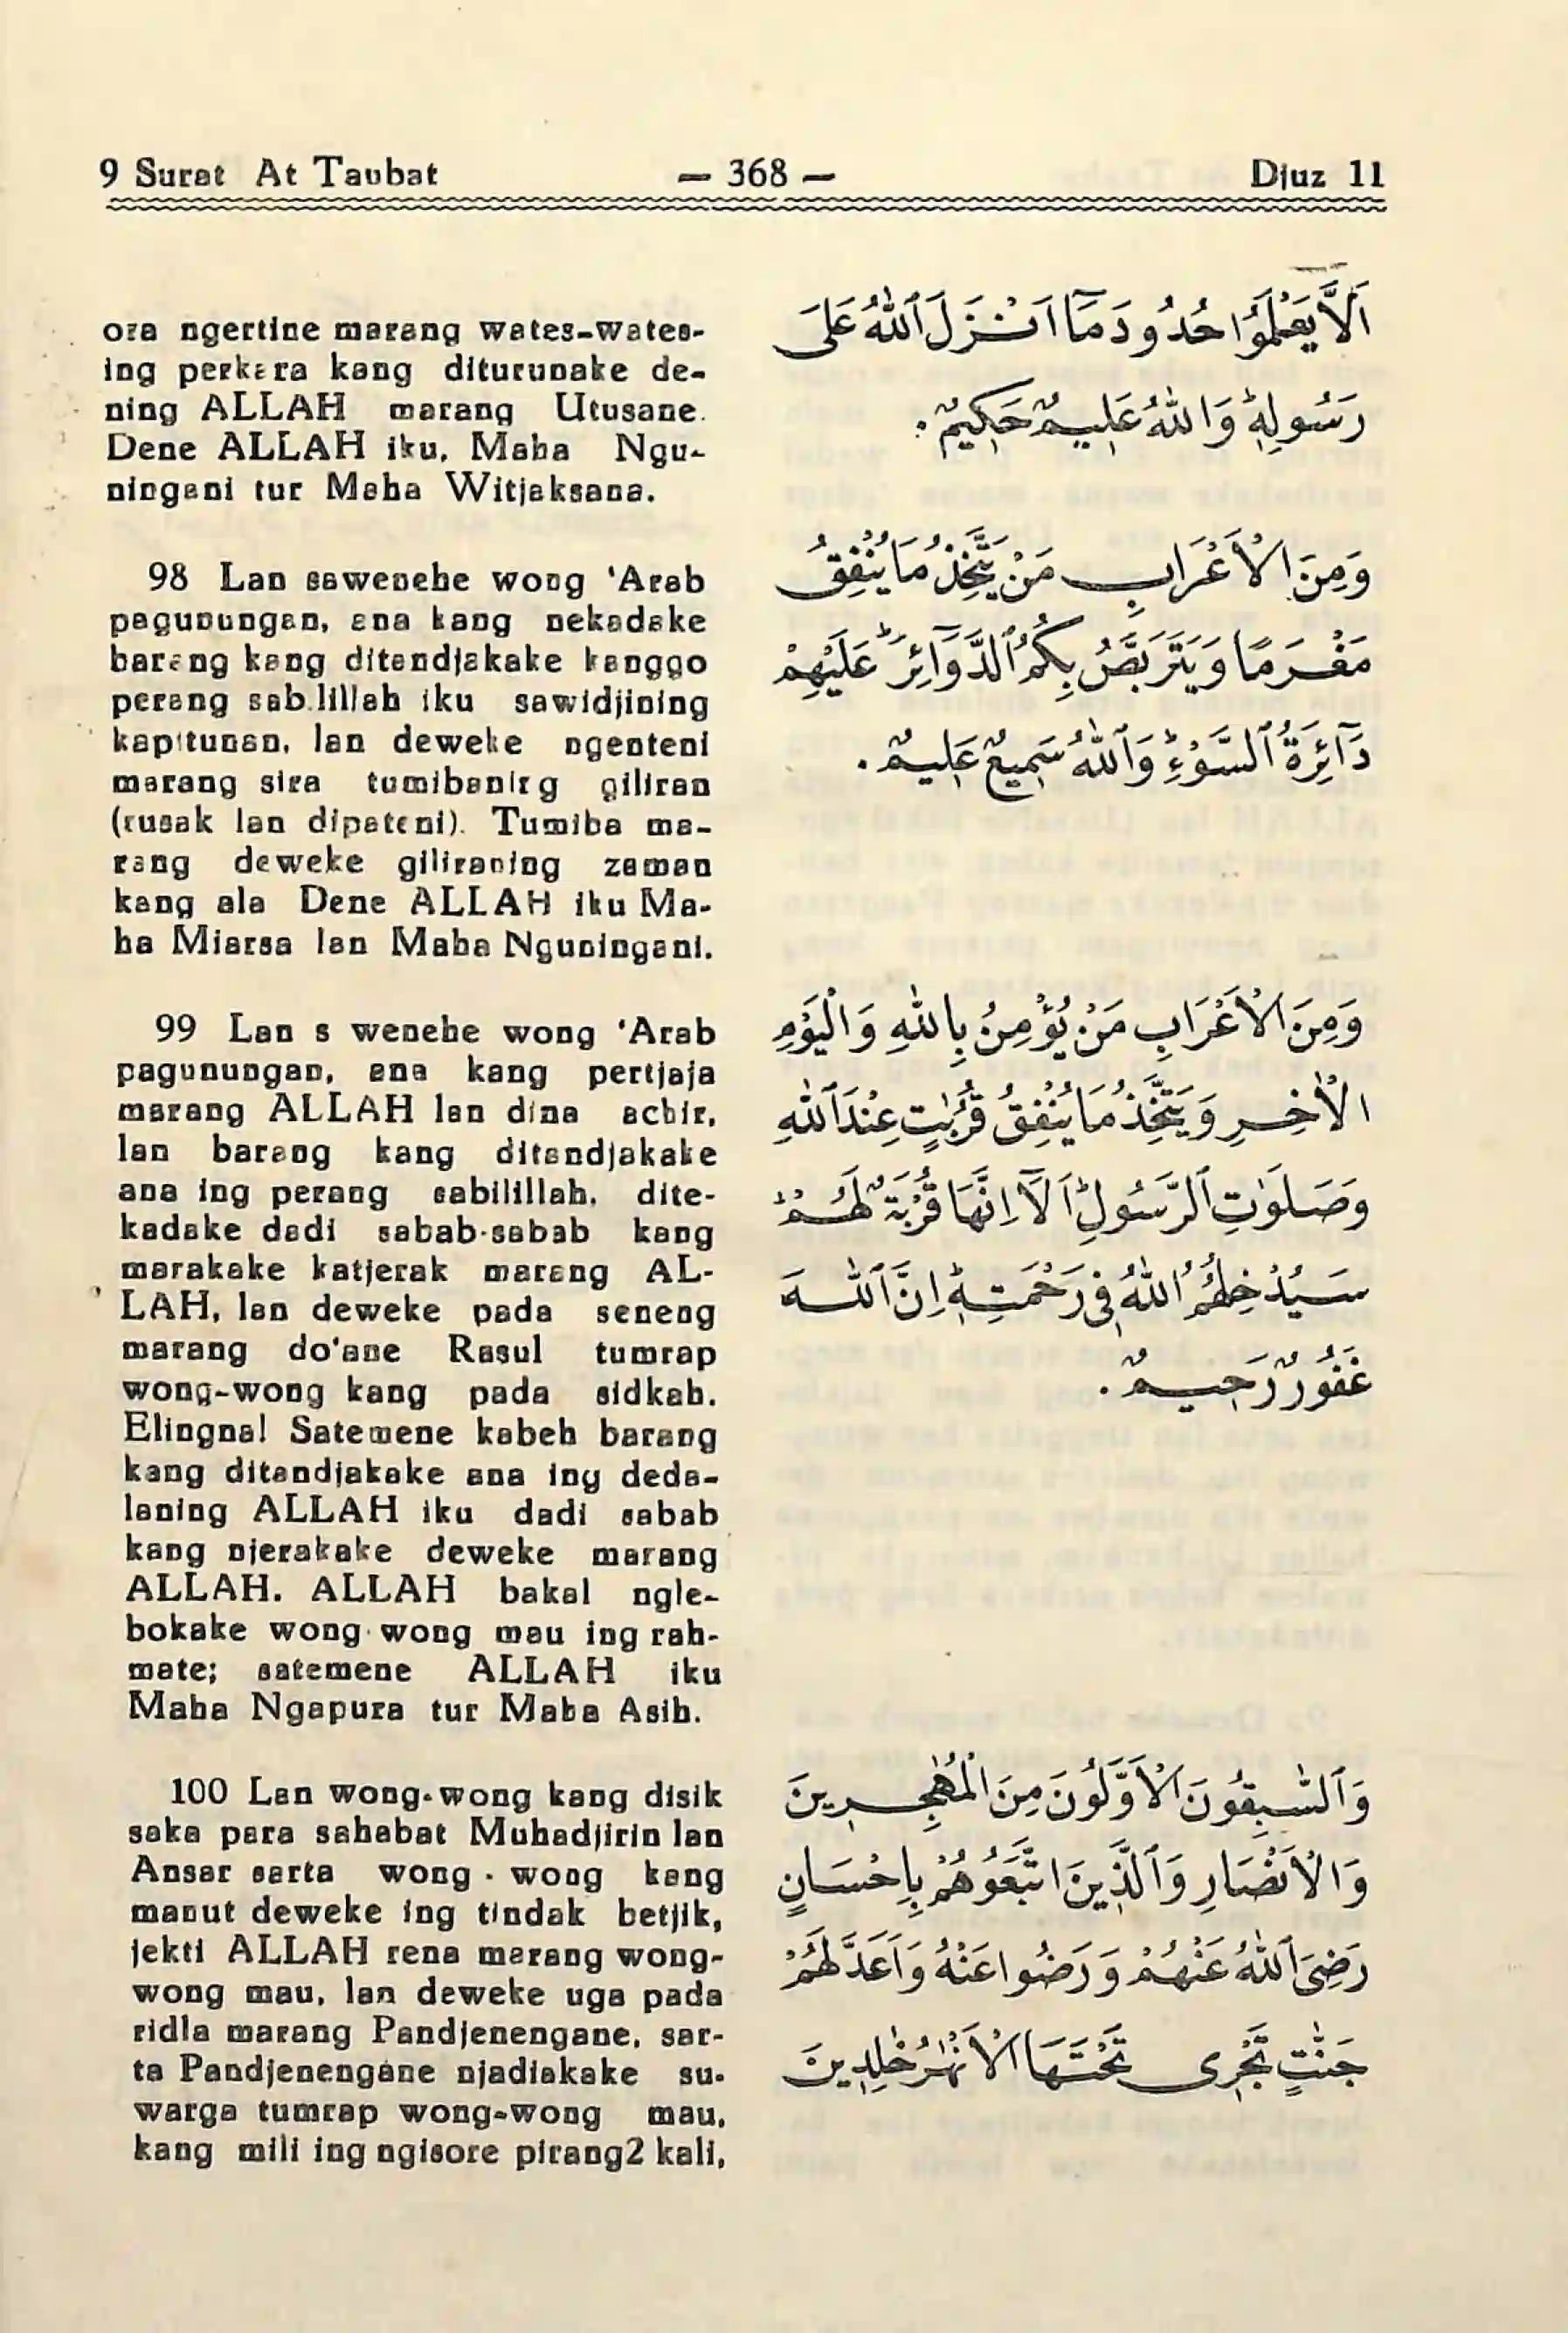 9 Surat At Taubat — 368 — Djuz 11
ora ngertine marang wates-wates-
ing perkara kang diturunake de-
ning ALLAH marang Utusane.
Dene ALLAH iku, Maha Ngu-
ningani tur Maha Witjaksana.
98 Lan sawenehe wong 'Arab
pagunungan, ana kang nekadake
barang kang ditandjakake kanggo
perang sabilillah iku sawidjining
kapitunan, lan deweke ngenteni
marang sira tumibaning giliran
(rusak lan dipateni). Tumiba ma-
rang deweke giliraning zaman
kang ala Dene ALLAH iku Ma-
ha Miarsa lan Maha Nguningani.
99 Lan s wenehe wong 'Arab
pagunungan, ana kang pertjaja
marang ALLAH lan dina achir,
lan barang kang ditandjakake
ana ing perang sabilillah, dite-
kadake dadi sabab-sabab kang
marakake katjerak marang AL-
LAH, lan deweke pada seneng
marang do'ane Rasul tumrap
wong-wong kang pada sidkah.
Elingna! Satemene kabeh barang
kang ditandjakake ana ing deda-
laning ALLAH iku dadi sabab
kang njerakake deweke marang
ALLAH. ALLAH bakal ngle-
bokake wong-wong mau ing rah-
mate; satemene ALLAH iku
Maha Ngapura tur Maha Asih.
100 Lan wong-wong kang disik
saka para sahabat Muhadjirin lan
Ansar sarta wong - wong kang
manut deweke ing tindak betjik,
jekti ALLAH rena marang wong-
wong mau, lan deweke uga pada
ridla marang Pandjenengane, sar-
ta Pandjenengane njadiakake su-
warga tumrap wong-wong mau,
kang mili ing ngisore pirang2 kali,
اَلَّا يَعْلَمُوْا حُدُوْدَ مَآ اَنْزَلَ ٱللّٰهُ عَلٰى
رَسُوْلِهٖ ۗ وَاللّٰهُ عَلِيْمٌ حَكِيْمٌ .
وَمِنَ الْاَعْرَابِ مَنْ يَتَّخِذُ مَا يُنْفِقُ
مَغْرَمًا وَيَتَرَبَّصُ بِكُمُ ٱلدَّوَآئِرَ ۗ عَلَيْهِمْ
دَآئِرَةُ ٱلسَّوْءِ ۗ وَٱللّٰهُ سَمِيْعٌ عَلِيْمٌ .
وَمِنَ الْاَعْرَابِ مَنْ يُّؤْمِنُ بِاللّٰهِ وَالْيَوْمِ
الْاٰخِرِ وَيَتَّخِذُ مَا يُنْفِقُ قُرُبٰتٍ عِنْدَ ٱللّٰهِ
وَصَلَوٰتِ ٱلرَّسُوْلِ ۗ اَلَآ اِنَّهَا قُرْبَةٌ لَهُمْ ۗ
سَيُدْخِلُهُمُ ٱللّٰهُ فِيْ رَحْمَتِهٖ ۗ اِنَّ ٱللّٰهَ
غَفُوْرٌ رَحِيْمٌ .
وَٱلسّٰبِقُوْنَ الْاَوَّلُوْنَ مِنَ الْمُهٰجِرِيْنَ
وَالْاَنْصَارِ وَٱلَّذِيْنَ اتَّبَعُوْهُمْ بِاِحْسَانٍ
رَضِيَ ٱللّٰهُ عَنْهُمْ وَرَضُوْا عَنْهُ وَاَعَدَّ لَهُمْ
جَنّٰتٍ تَجْرِيْ تَحْتَهَا الْاَنْهٰرُ خٰلِدِيْنَ